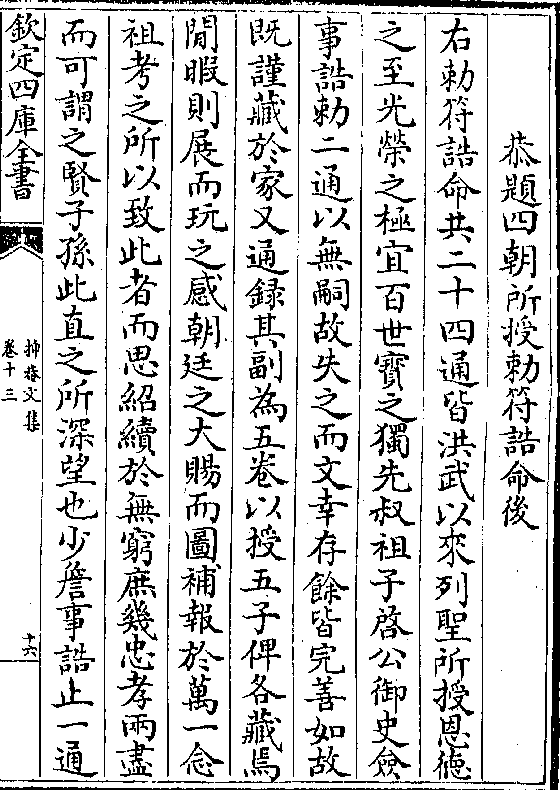 恭題四朝所授勅符誥命後
右勅符誥命共二十四通皆洪武以來列聖所授恩徳
之至光榮之極宜百世寶之獨先叔祖子啓公御史僉
事誥勅二通以無嗣故失之而文幸存餘皆完善如故
既謹藏於家又通録其副為五卷以授五子俾各藏焉
閒暇則展而玩之感朝廷之大賜而圖補報於萬一念
祖考之所以致此者而思紹續於無窮庶幾忠孝兩盡
而可謂之賢子孫此直之所深望也少詹事誥止一通
欽定四庫全書
抑菴文集
卷十三
十六